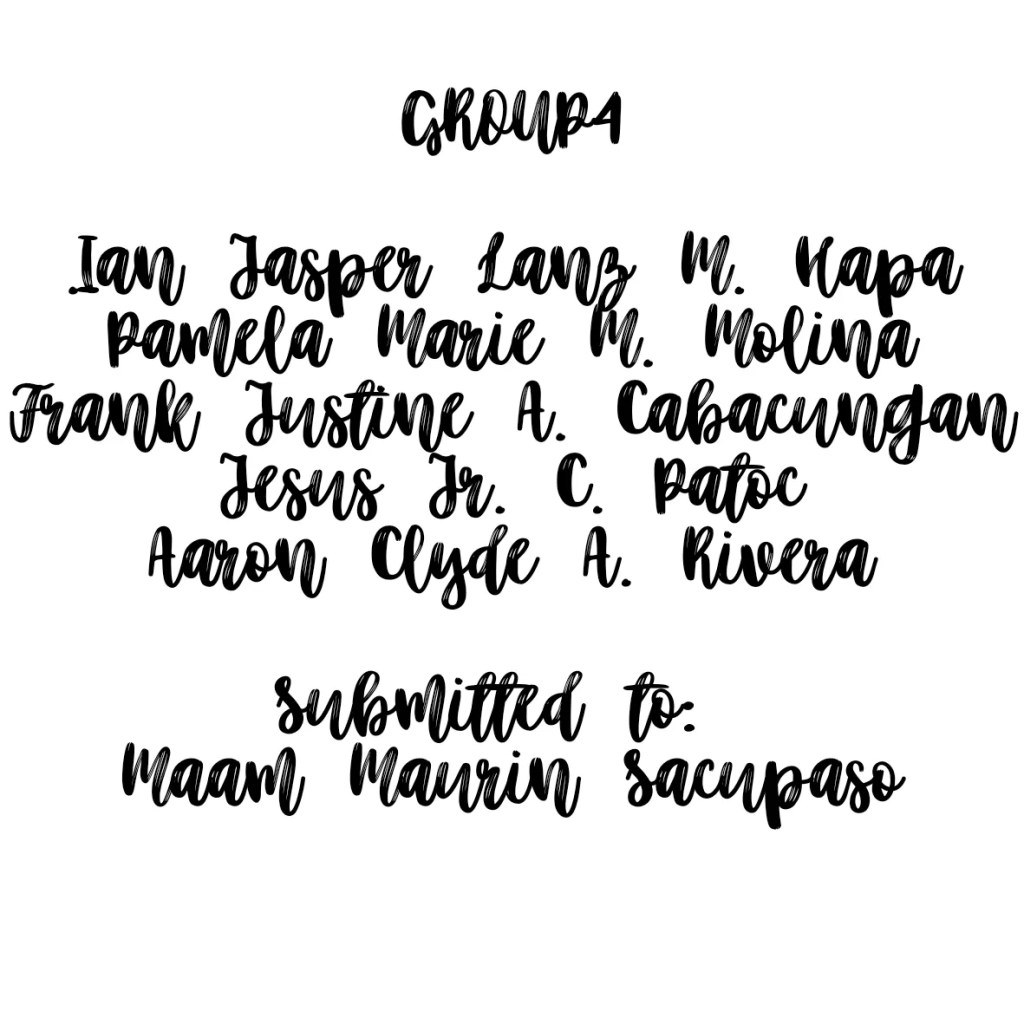 GROUP4
Ian Jasper Lanz M. Hapa
Pamela Marie M. Molina
Frank Justine A. Cabacungan
Jesus Jr. C. Patoc
Aaron Clyde A. Rivera
Submitted to:
Maam Maurin Sacupaso